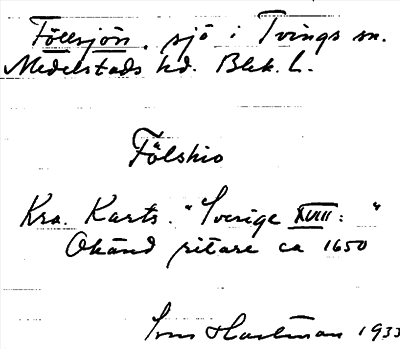 Föllsjön, sjö i Tvings sn.
Medelstads hd. Blek. L.
Fölshio
Kra. Kartv. "Sverige XVIII: "
Okänd ritare ca 1650
Hartman 1933